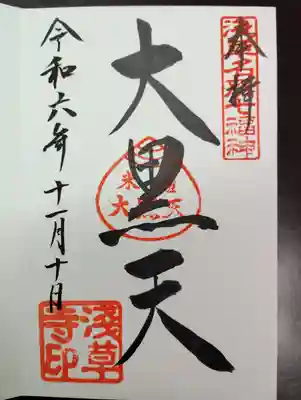 奉拝
浅草名所七福神
大黒天
大黒天
令和六年十一月十日
浅草
寺印